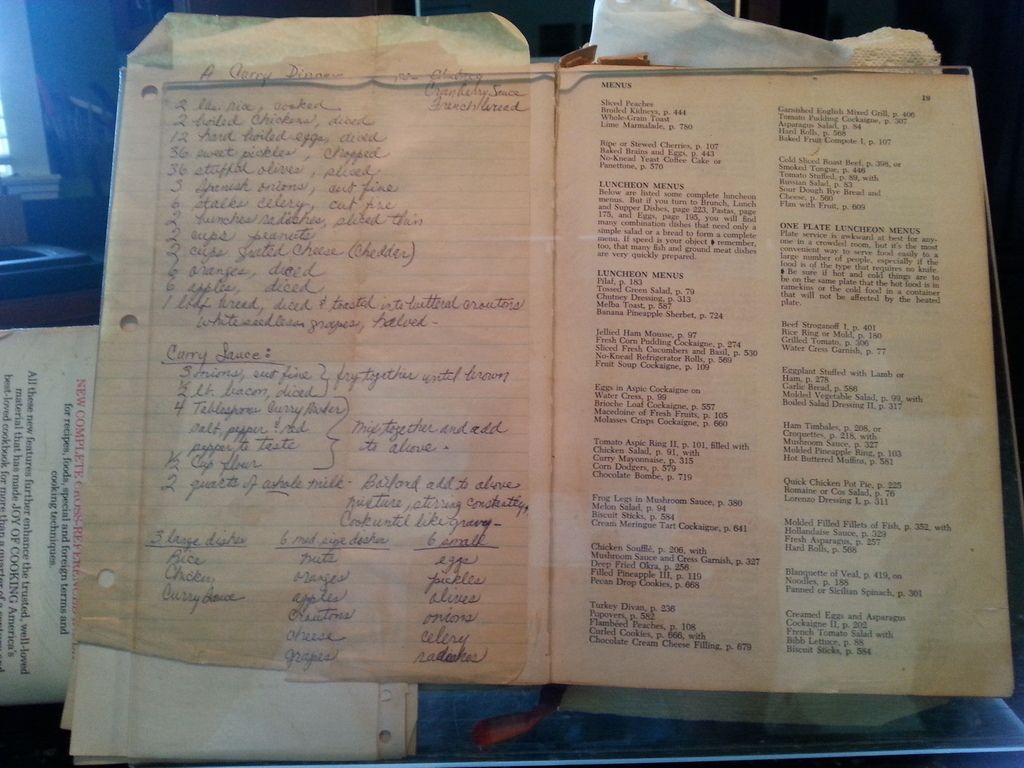 A Curry Dinner
Chutney
Cranberry Sauce
French bread
2 lbs. rice, cooked
2 boiled chickens, diced
12 hard boiled eggs, diced
36 sweet pickles, chopped
36 stuffed olives, sliced
3 Spanish onions, cut fine
6 stalks celery, cut fine
2 bunches radishes, sliced thin
2 cups peanuts
2 cups grated cheese (cheddar)
6 oranges, diced
6 apples, diced
1 loaf bread, diced & toasted into buttered croutons
White seedless grapes, halved -
Curry Sauce:
3 onions, cut fine } fry together until brown
1/2 lb. bacon, diced
4 Tablespoons Curry Powder
salt, pepper & red } Mix together and add
pepper to taste to above -
1/2 Cup flour
2 quarts of whole milk - add to above
mixture, stirring constantly,
Cook until like gravy -
3 large dishes 6 med. size dishes 6 small
Rice nuts eggs
Chicken oranges pickles
Curry Sauce apples olives
Croutons onions
cheese celery
grapes radishes
MENUS
Sliced Peaches
Broiled Kidneys, p. 444
Whole-Grain Toast
Lime Marmalade, p. 780
Ripe or Stewed Cherries, p. 107
Baked Brains and Eggs, p. 443
No-Knead Yeast Coffee Cake or
Panettone, p. 570
LUNCHEON MENUS
Below are listed some complete luncheon
menus. But if you turn to Brunch, Lunch
and Supper Dishes, page 223, Pastas, page
175, and Eggs, page 195, you will find
many combination dishes that need only a
simple salad or a bread to form a complete
menu. If speed is your object ♦ remember,
too, that many fish and ground meat dishes
are very quickly prepared.
LUNCHEON MENUS
Pilaf, p. 183
Tossed Green Salad, p. 79
Chutney Dressing, p. 313
Melba Toast, p. 587
Banana Pineapple Sherbet, p. 724
Jellied Ham Mousse, p. 97
Fresh Corn Pudding Cockaigne, p. 274
Sliced Fresh Cucumbers and Basil, p. 530
No-Knead Refrigerator Rolls, p. 569
Fruit Soup Cockaigne, p. 109
Eggs in Aspic Cockaigne on
Water Cress, p. 99
Brioche Loaf Cockaigne, p. 557
Macedoine of Fresh Fruits, p. 105
Molasses Crisps Cockaigne, p. 660
Tomato Aspic Ring II, p. 101, filled with
Chicken Salad, p. 91, with
Curry Mayonnaise, p. 315
Corn Dodgers, p. 579
Chocolate Bombe, p. 719
Frog Legs in Mushroom Sauce, p. 380
Melon Salad, p. 94
Biscuit Sticks, p. 584
Cream Meringue Tart Cockaigne, p. 641
Chicken Soufflé, p. 206, with
Mushroom Sauce and Cress Garnish, p. 327
Deep Fried Okra, p. 256
Filled Pineapple III, p. 119
Pecan Drop Cookies, p. 668
Turkey Divan, p. 236
Popovers, p. 582
Flambéed Peaches, p. 108
Curled Cookies, p. 666, with
Chocolate Cream Cheese Filling, p. 679
19
Garnished English Mixed Grill, p. 406
Tomato Pudding Cockaigne, p. 307
Asparagus Salad, p. 84
Hard Rolls, p. 568
Baked Fruit Compote I, p. 107
Cold Sliced Roast Beef, p. 398, or
Smoked Tongue, p. 446
Tomato Stuffed, p. 89, with
Russian Salad, p. 83
Sour Dough Rye Bread and
Cheese, p. 560
Flan with Fruit, p. 609
ONE PLATE LUNCHEON MENUS
Plate service is awkward at best for any-
one in a crowded room, but it's the most
convenient way to serve food easily to a
large number of people, especially if the
food is of the type that requires no knife.
♦ Be sure if hot and cold things are to
be on the same plate that the hot food is in
ramekins or the cold food in a container
that will not be affected by the heated
plate.
Beef Stroganoff I, p. 401
Rice Ring or Mold, p. 180
Grilled Tomato, p. 306
Water Cress Garnish, p. 77
Eggplant Stuffed with Lamb or
Ham, p. 278
Garlic Bread, p. 586
Molded Vegetable Salad, p. 99, with
Boiled Salad Dressing II, p. 317
Ham Timbales, p. 208, or
Croquettes, p. 218, with
Mushroom Sauce, p. 327
Molded Pineapple Ring, p. 103
Hot Buttered Muffins, p. 581
Quick Chicken Pot Pie, p. 225
Romaine or Cos Salad, p. 76
Lorenzo Dressing I, p. 311
Molded Filled Fillets of Fish, p. 352, with
Hollandaise Sauce, p. 329
Fresh Asparagus, p. 257
Hard Rolls, p. 568
Blanquette of Veal, p. 419, on
Noodles, p. 188
Panned or Sicilian Spinach, p. 301
Creamed Eggs and Asparagus
Cockaigne II, p. 202
French Tomato Salad with
Bibb Lettuce, p. 88
Biscuit Sticks, p. 584
NEW COMPLETE CROSS-REFERENCE
for recipes, foods, special and foreign terms and
cooking techniques.
All these new features further enhance the trusted, well-loved
material that has made JOY OF COOKING America's
best-loved cookbook for more than a quarter of a